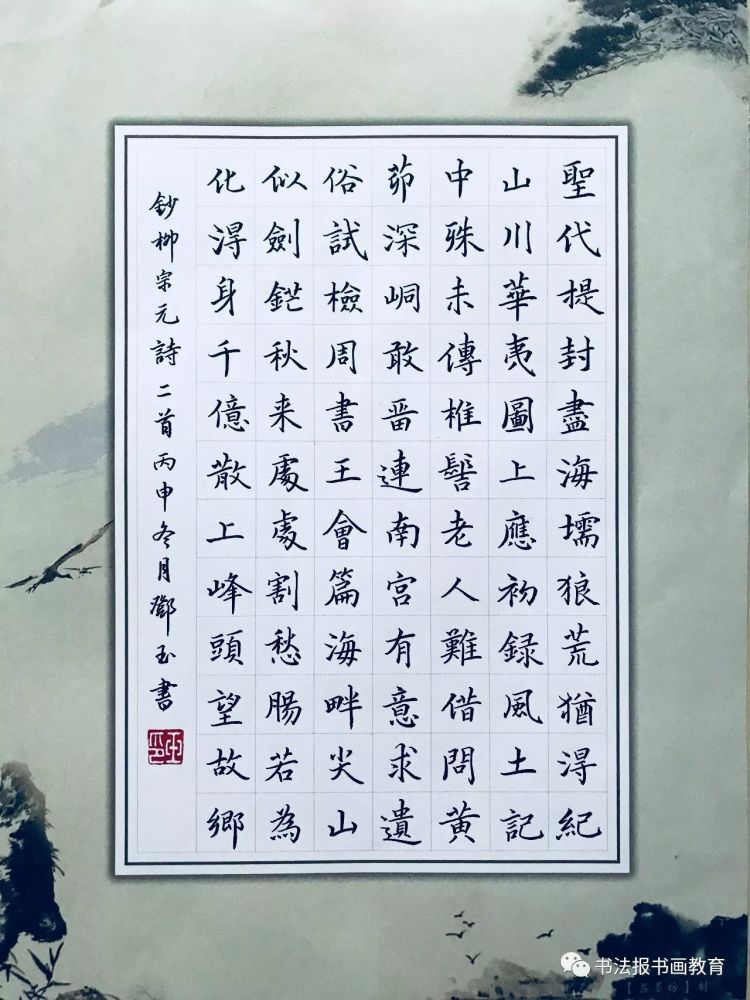 聖代提封盡海壖狼荒猶淂紀
山川華夷圖上應初録風土記
中殊未傳椎髻老人難借問黄
茆深峒敢畱連南宮有意求遺
俗試檢周書王會篇海畔尖山
似劍鋩秋来處處割愁腸若為
化淂身千億散上峰頭望故鄉
鈔柳宗元詩二首丙申冬月鄧玉書
书法报书画教育